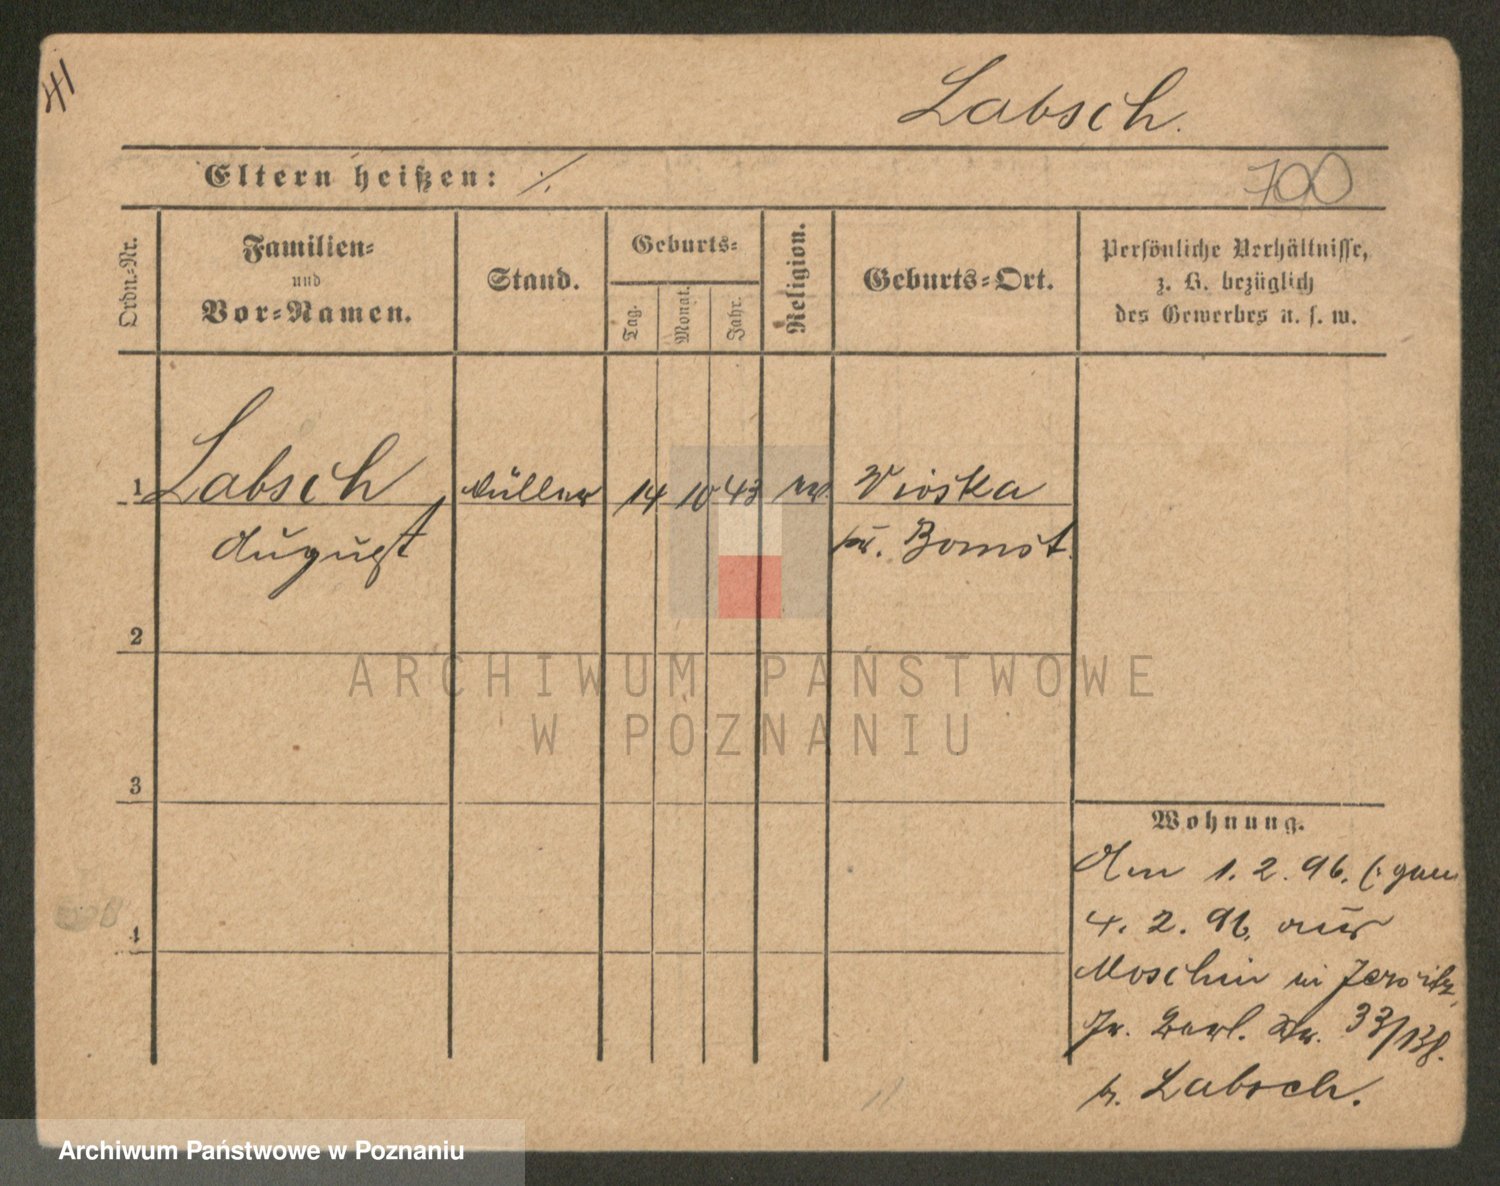 41
Labsch.
Eltern heißen: ·/.
700
Ordn.-Nr.
Familien-
und
Vor-Namen.
Stand.
Geburts-
Tag.
Monat.
Jahr.
Religion.
Geburts-Ort.
Persönliche Verhältnisse,
z. B. bezüglich
des Gewerbes u. s. w.
1 Labsch Müller 14 10 43 ev. Wioska
August Kr. Bomst.
2
3
4
Wohnung.
Am 1. 2. 96. (: gem
4. 2. 96. aus
Moschin in Jersitz,
Gr. Berl. Str. 33/138.
b. Labsch.
ARCHIWUM PAŃSTWOWE
W POZNANIU
Archiwum Państwowe w Poznaniu